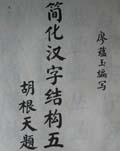 廖蕴玉编写
简化汉字结构五
胡根天題